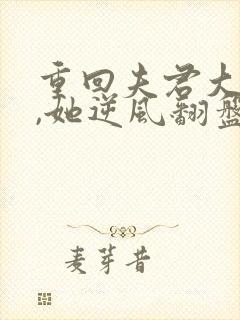 重回夫君大
,她逆风翻盘
麦芽昔